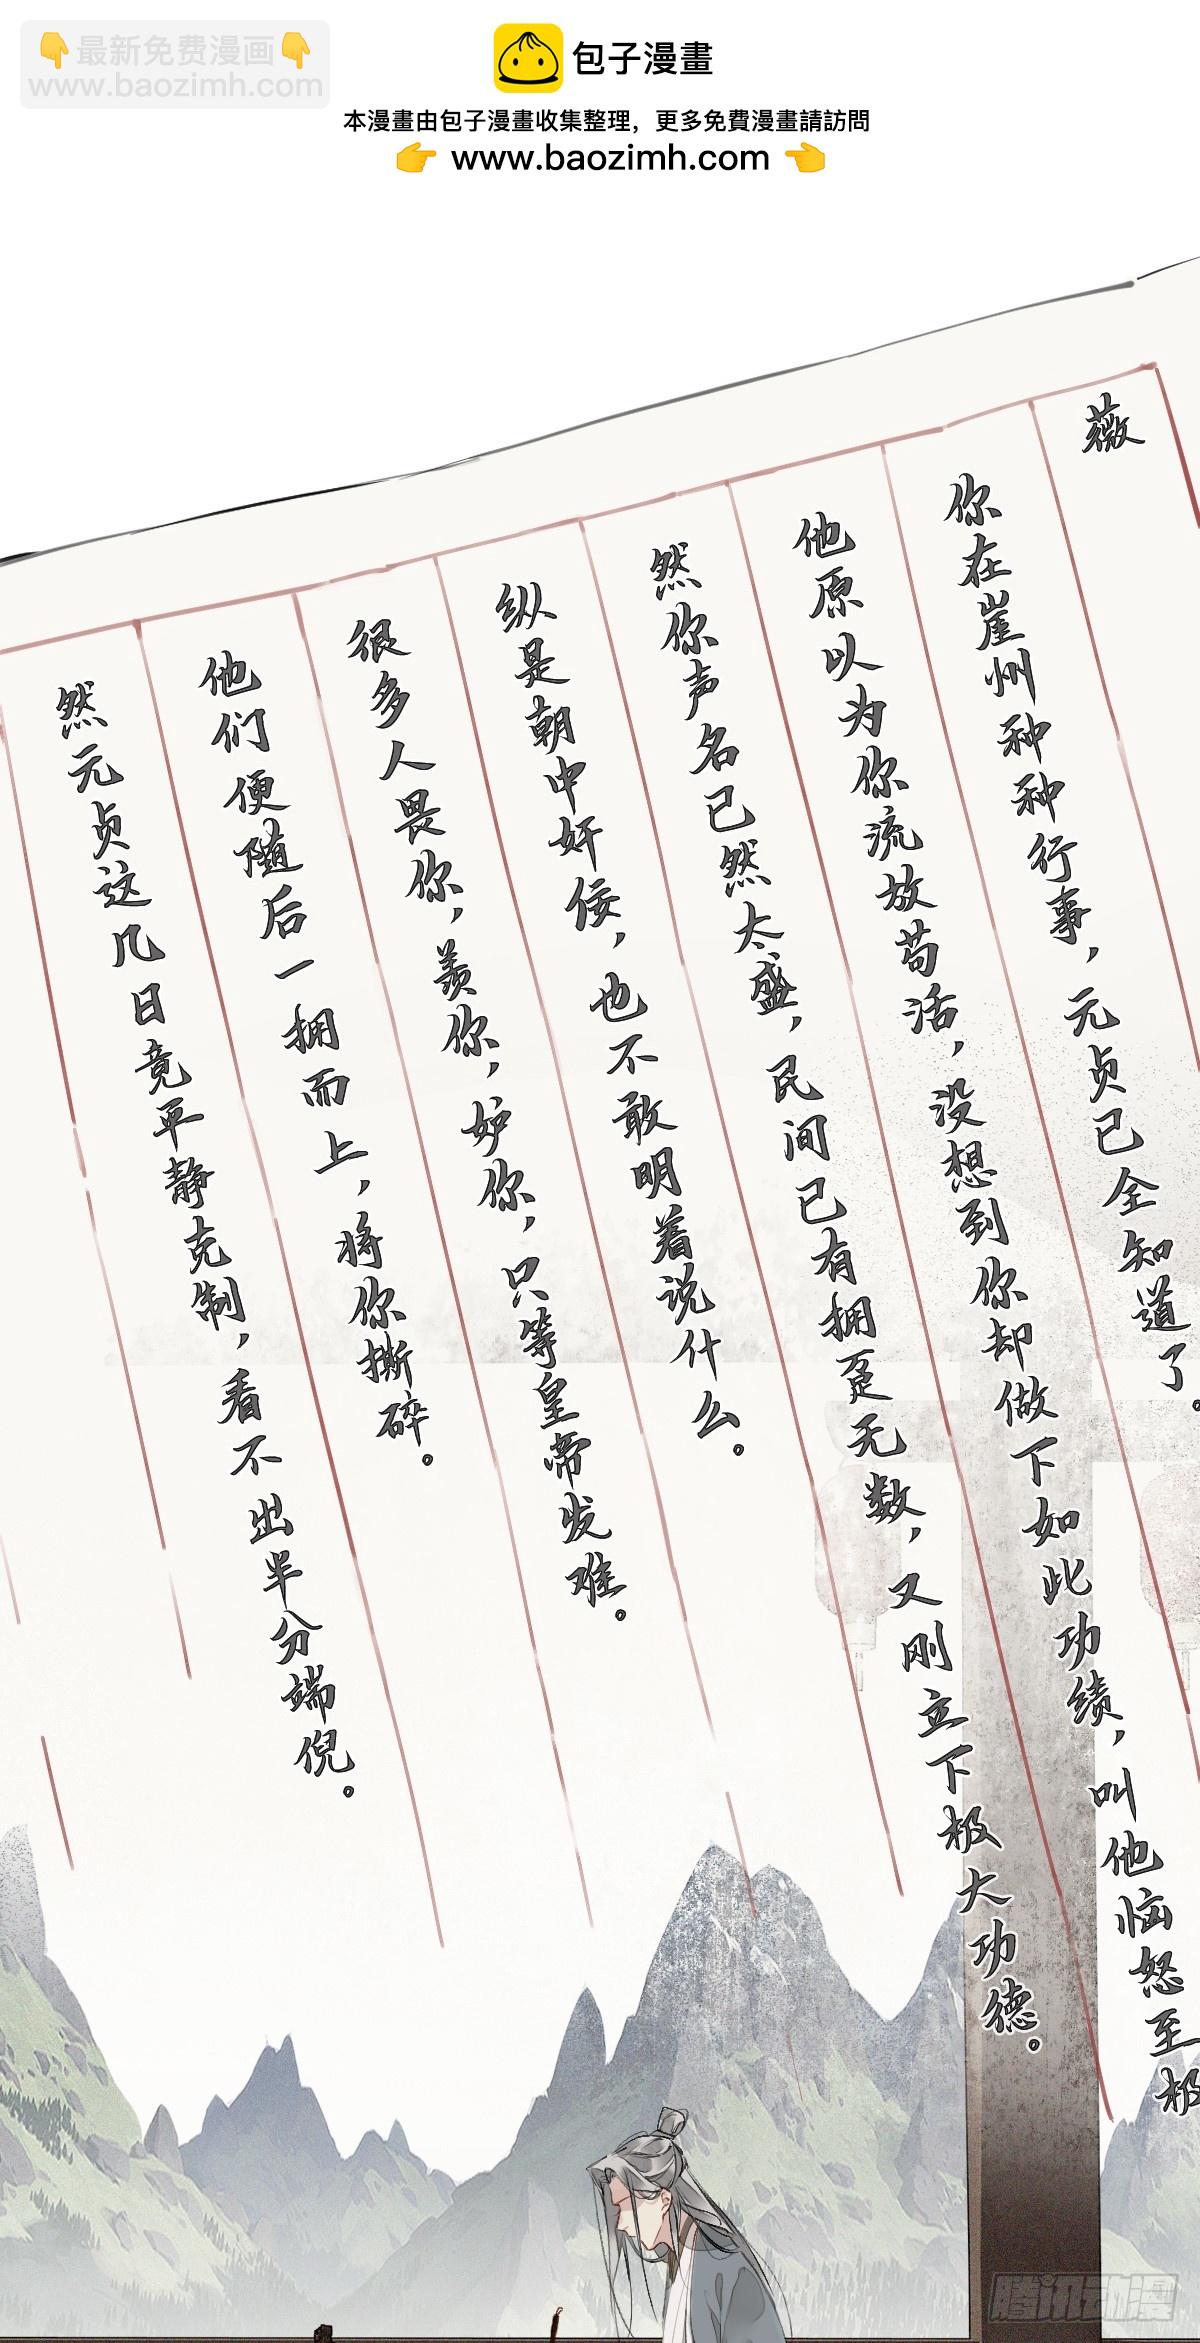 最新免费漫画
www.baozimh.com
包子漫畫
本漫畫由包子漫畫收集整理，更多免費漫畫請訪問
www.baozimh.com
薇
你在崖州种种行事，元贞已全知道了。
他原以为你流放苟活，没想到你却做下如此功绩，叫他恼怒至极
然你声名已然太盛，民间已有拥趸无数，又刚立下极大功德。
纵是朝中奸佞，也不敢明着说什么。
很多人畏你，羡你，妒你，只等皇帝发难。
他们便随后一拥而上，将你撕碎。
然元贞这几日竟平静克制，看不出半分端倪。
腾讯动漫